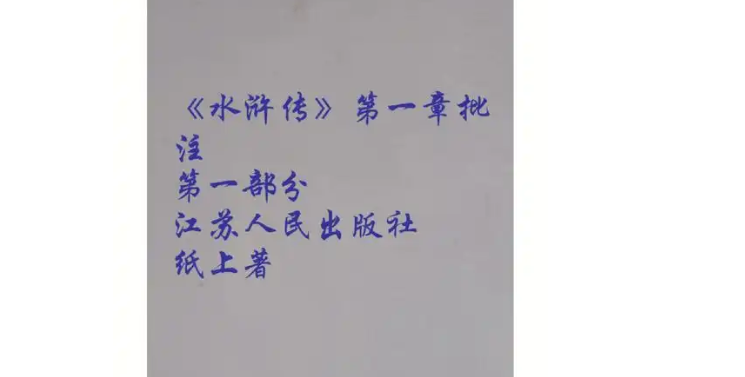 《水浒传》第一章批
注
第一部分
江苏人民出版社
纸上著